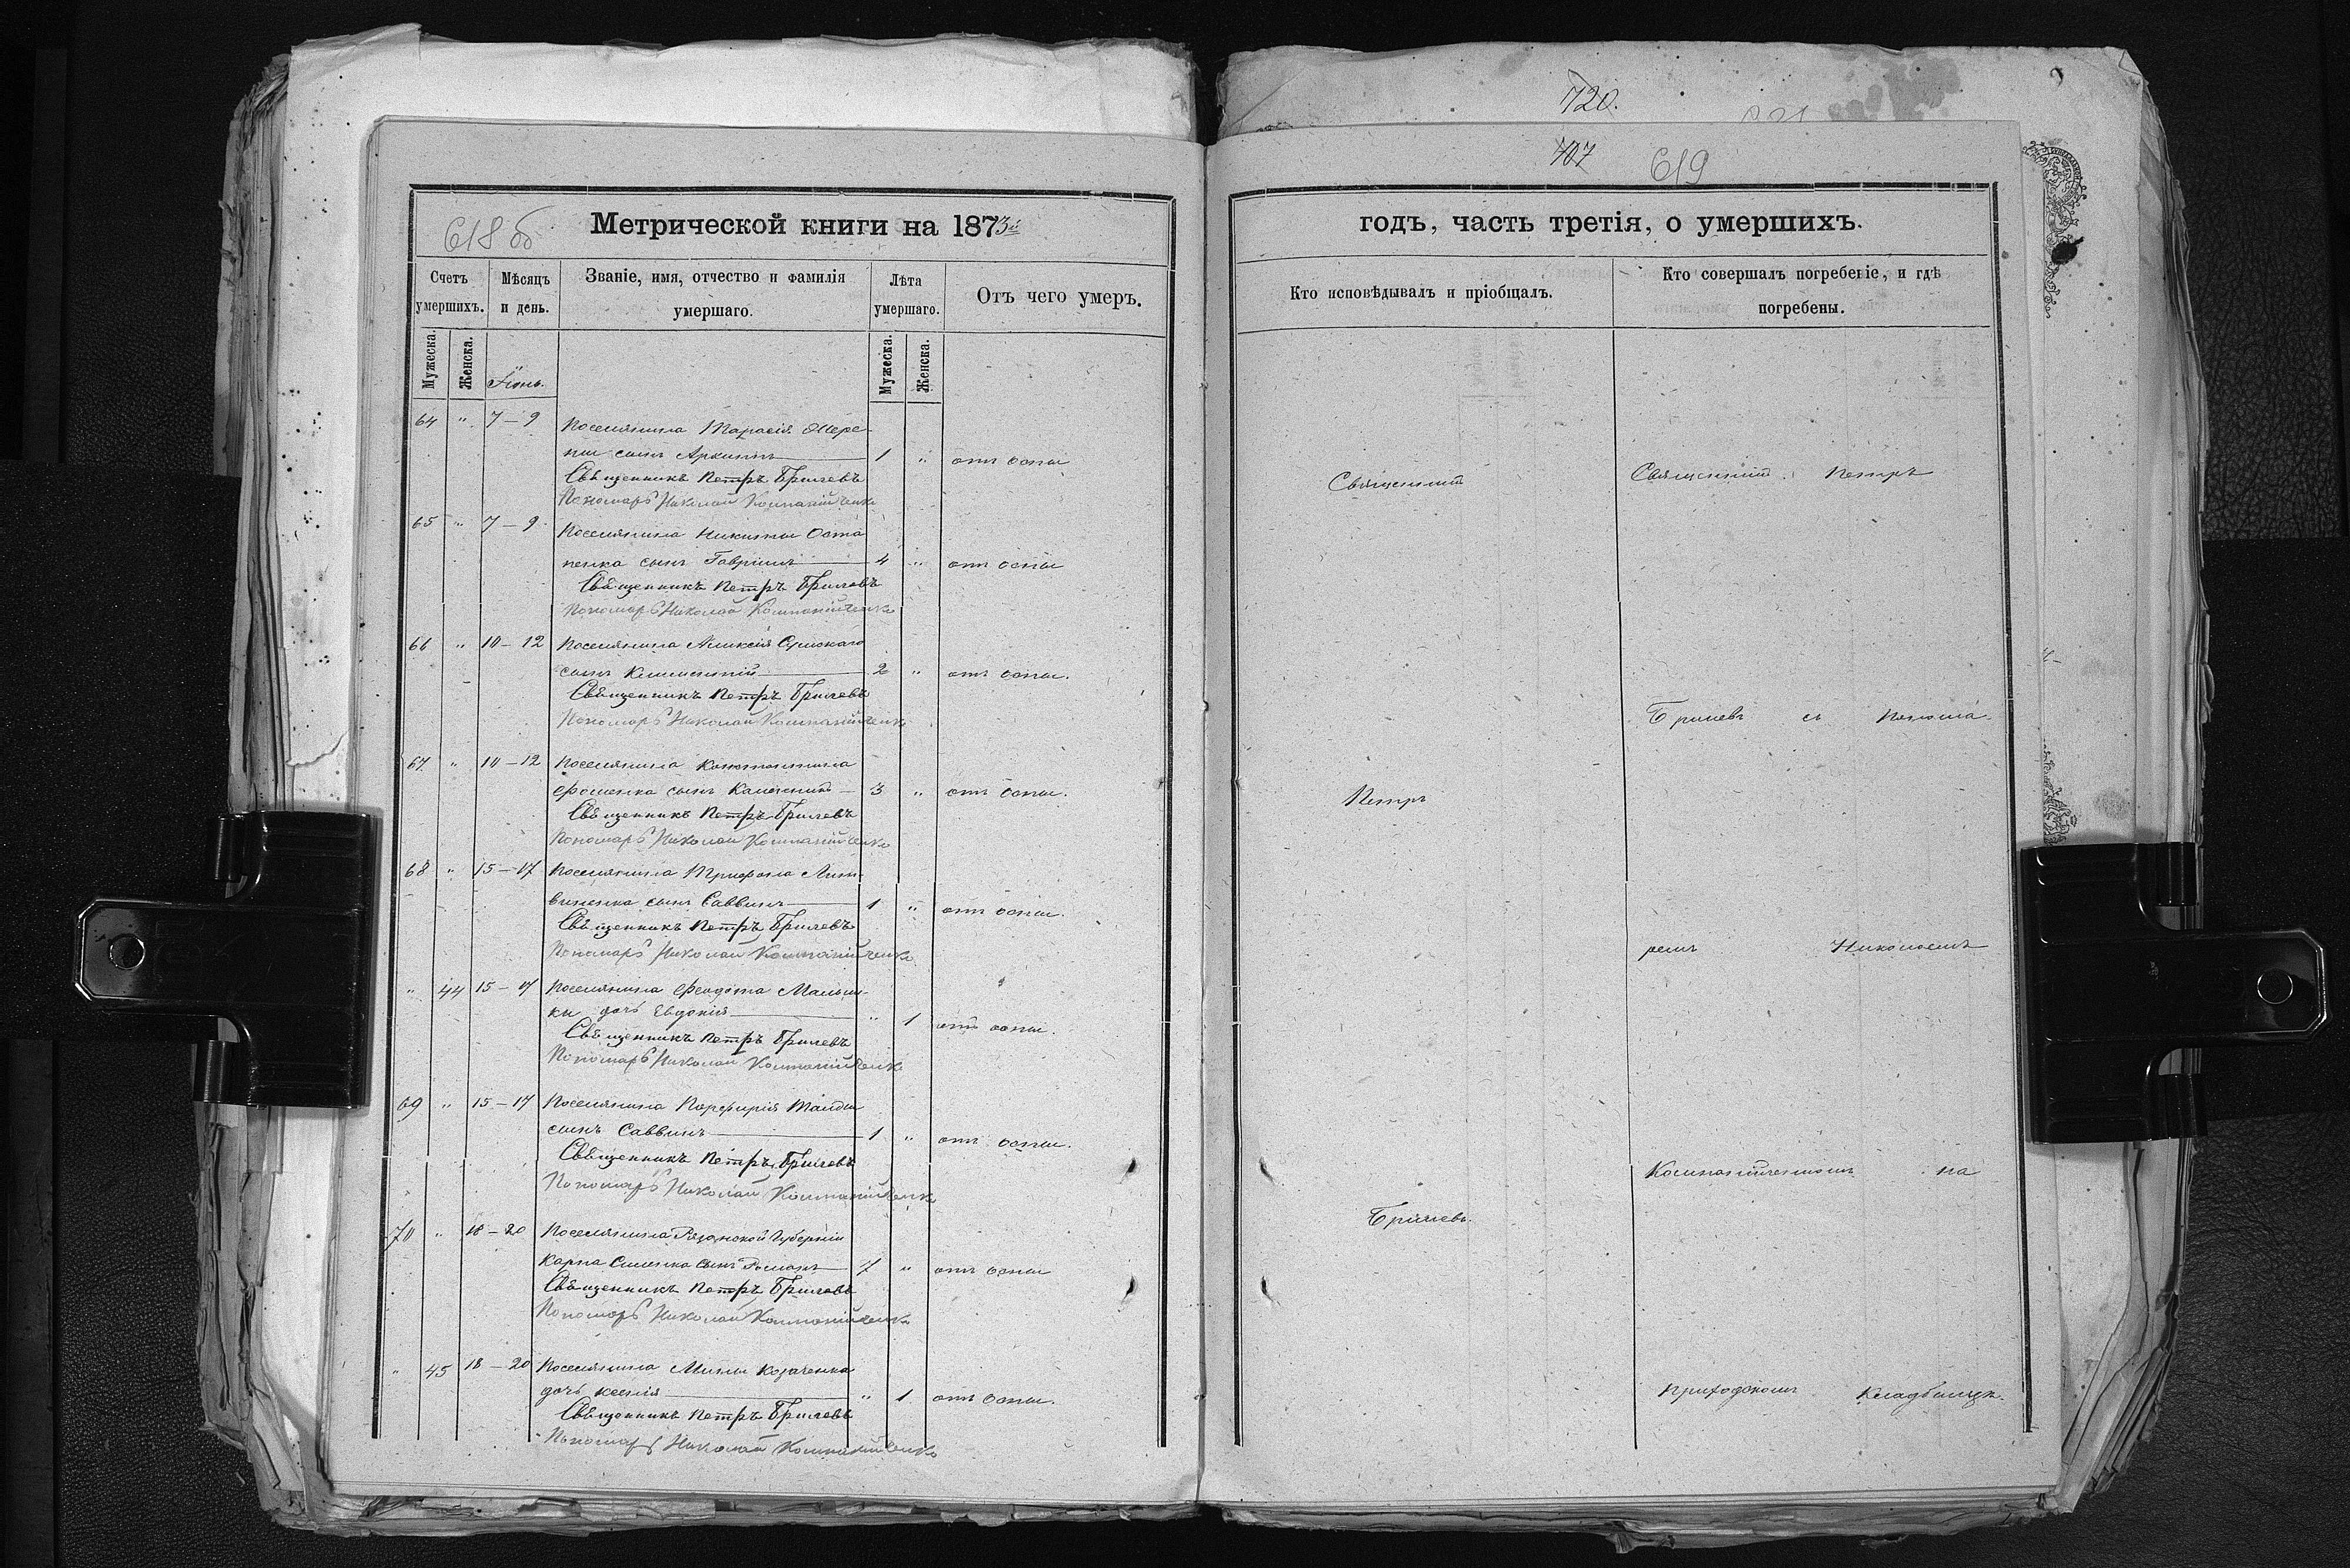 618 об
Метрической книги на 1873й
Счетъ умершихъ.
Мѣсяцъ и день.
Званіе, имя, отчество и фамилія умершаго.
Лѣта умершаго.
Отъ чего умеръ.
Мужеска.
Женска.
Іюнь.
Мужеска.
Женска.
64 " 7–9 Поселянина Тарасія Шере-
пы сынъ Архипъ 1 " отъ оспы
Священникъ Петръ Брилевъ
Пономарь Николай Компанійченко
65 " 7–9 Поселянина Никиты Оста
пенка сынъ Гавріилъ 4 " отъ оспы
Священникъ Петръ Брилевъ
Пономарь Николай Компанійченко
66 " 10–12 Поселянина Алексія
сынъ Климентій 2 " отъ оспы.
Священникъ Петръ Брилевъ
Пономарь Николай Компанійченко
67 " 10–12 Поселянина Константина
Фоменка сынъ 3 " отъ оспы.
Священникъ Петръ Брилевъ
Пономарь Николай Компанійченко
68 " 15–17 Поселянина Трифона Лит-
виненка сынъ Саввинъ 1 " отъ оспы.
Священникъ Петръ Брилевъ
Пономарь Николай Компанійченко
" 44 15–17 Поселянина Феодота Малыш-
ки дочь Евдокія " 1 отъ оспы.
Священникъ Петръ Брилевъ
Пономарь Николай Компанійченко
69 " 15–17 Поселянина Порфирія
сынъ Саввинъ 1 " отъ оспы.
Священникъ Петръ Брилевъ
Пономарь Николай Компанійченко
70 " 18–20 Поселянина Рязанской Губерніи
Карпа сынъ Романъ 7 " отъ оспы
Священникъ Петръ Брилевъ
Пономарь Николай Компанійченко
" 45 18–20 Поселянина Мины Козаченка
дочь Ксенія " 1 отъ оспы.
Священникъ Петръ Брилевъ
Пономарь Николай Компанійченко
720.
707 619
годъ, часть третія, о умершихъ.
Кто исповѣдывалъ и пріобщалъ.
Кто совершалъ погребеніе, и гдѣ погребены.
Священникъ
Петръ
Брилевъ.
Священникъ Петръ
Брилевъ съ Понома-
ремъ Николаемъ
Компанійченкомъ на
приходскомъ кладбищѣ.